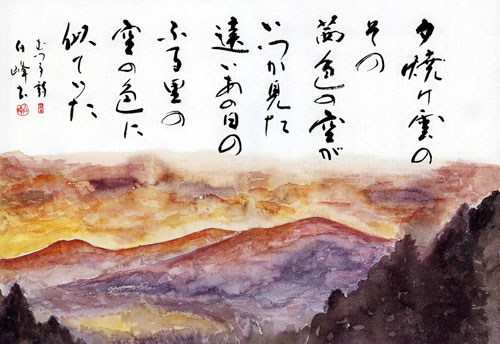 夕焼け雲の
その
茜色の空が
いつか見た
遠いあの日の
ふる里の
空の色に
似ていた